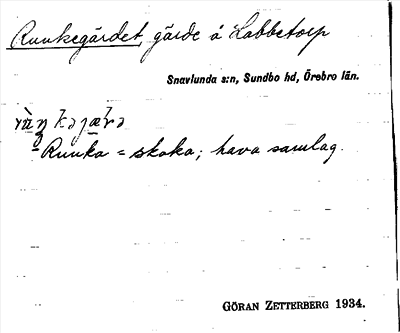 Runkegärdet, gärde å Labbetorp
Snavlunda s:n, Sundbo hd, Örebro län.
Runka = skaka; hava samlag.
GÖRAN ZETTERBERG 1934.